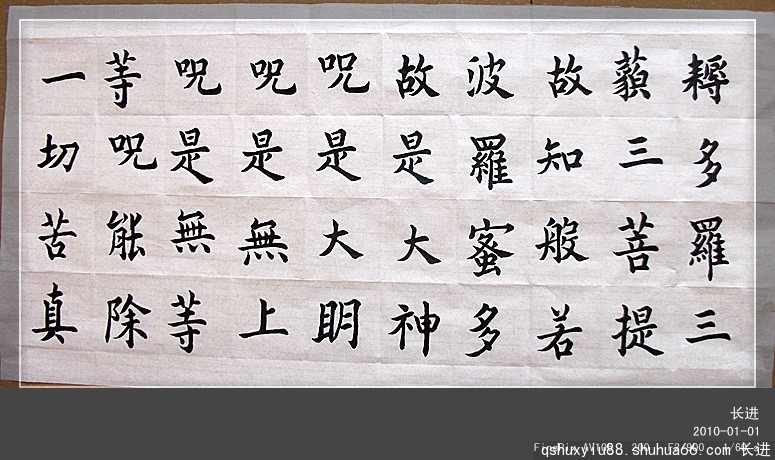 耨多羅三
藐三菩提
故知般若
波羅蜜多
故是大神
呪是大明
呪是無上
呪是無等
等呪能除
一切苦真
长进
2010-01-01
FinePix
qshuxyiu88.shuhua66.com 长进